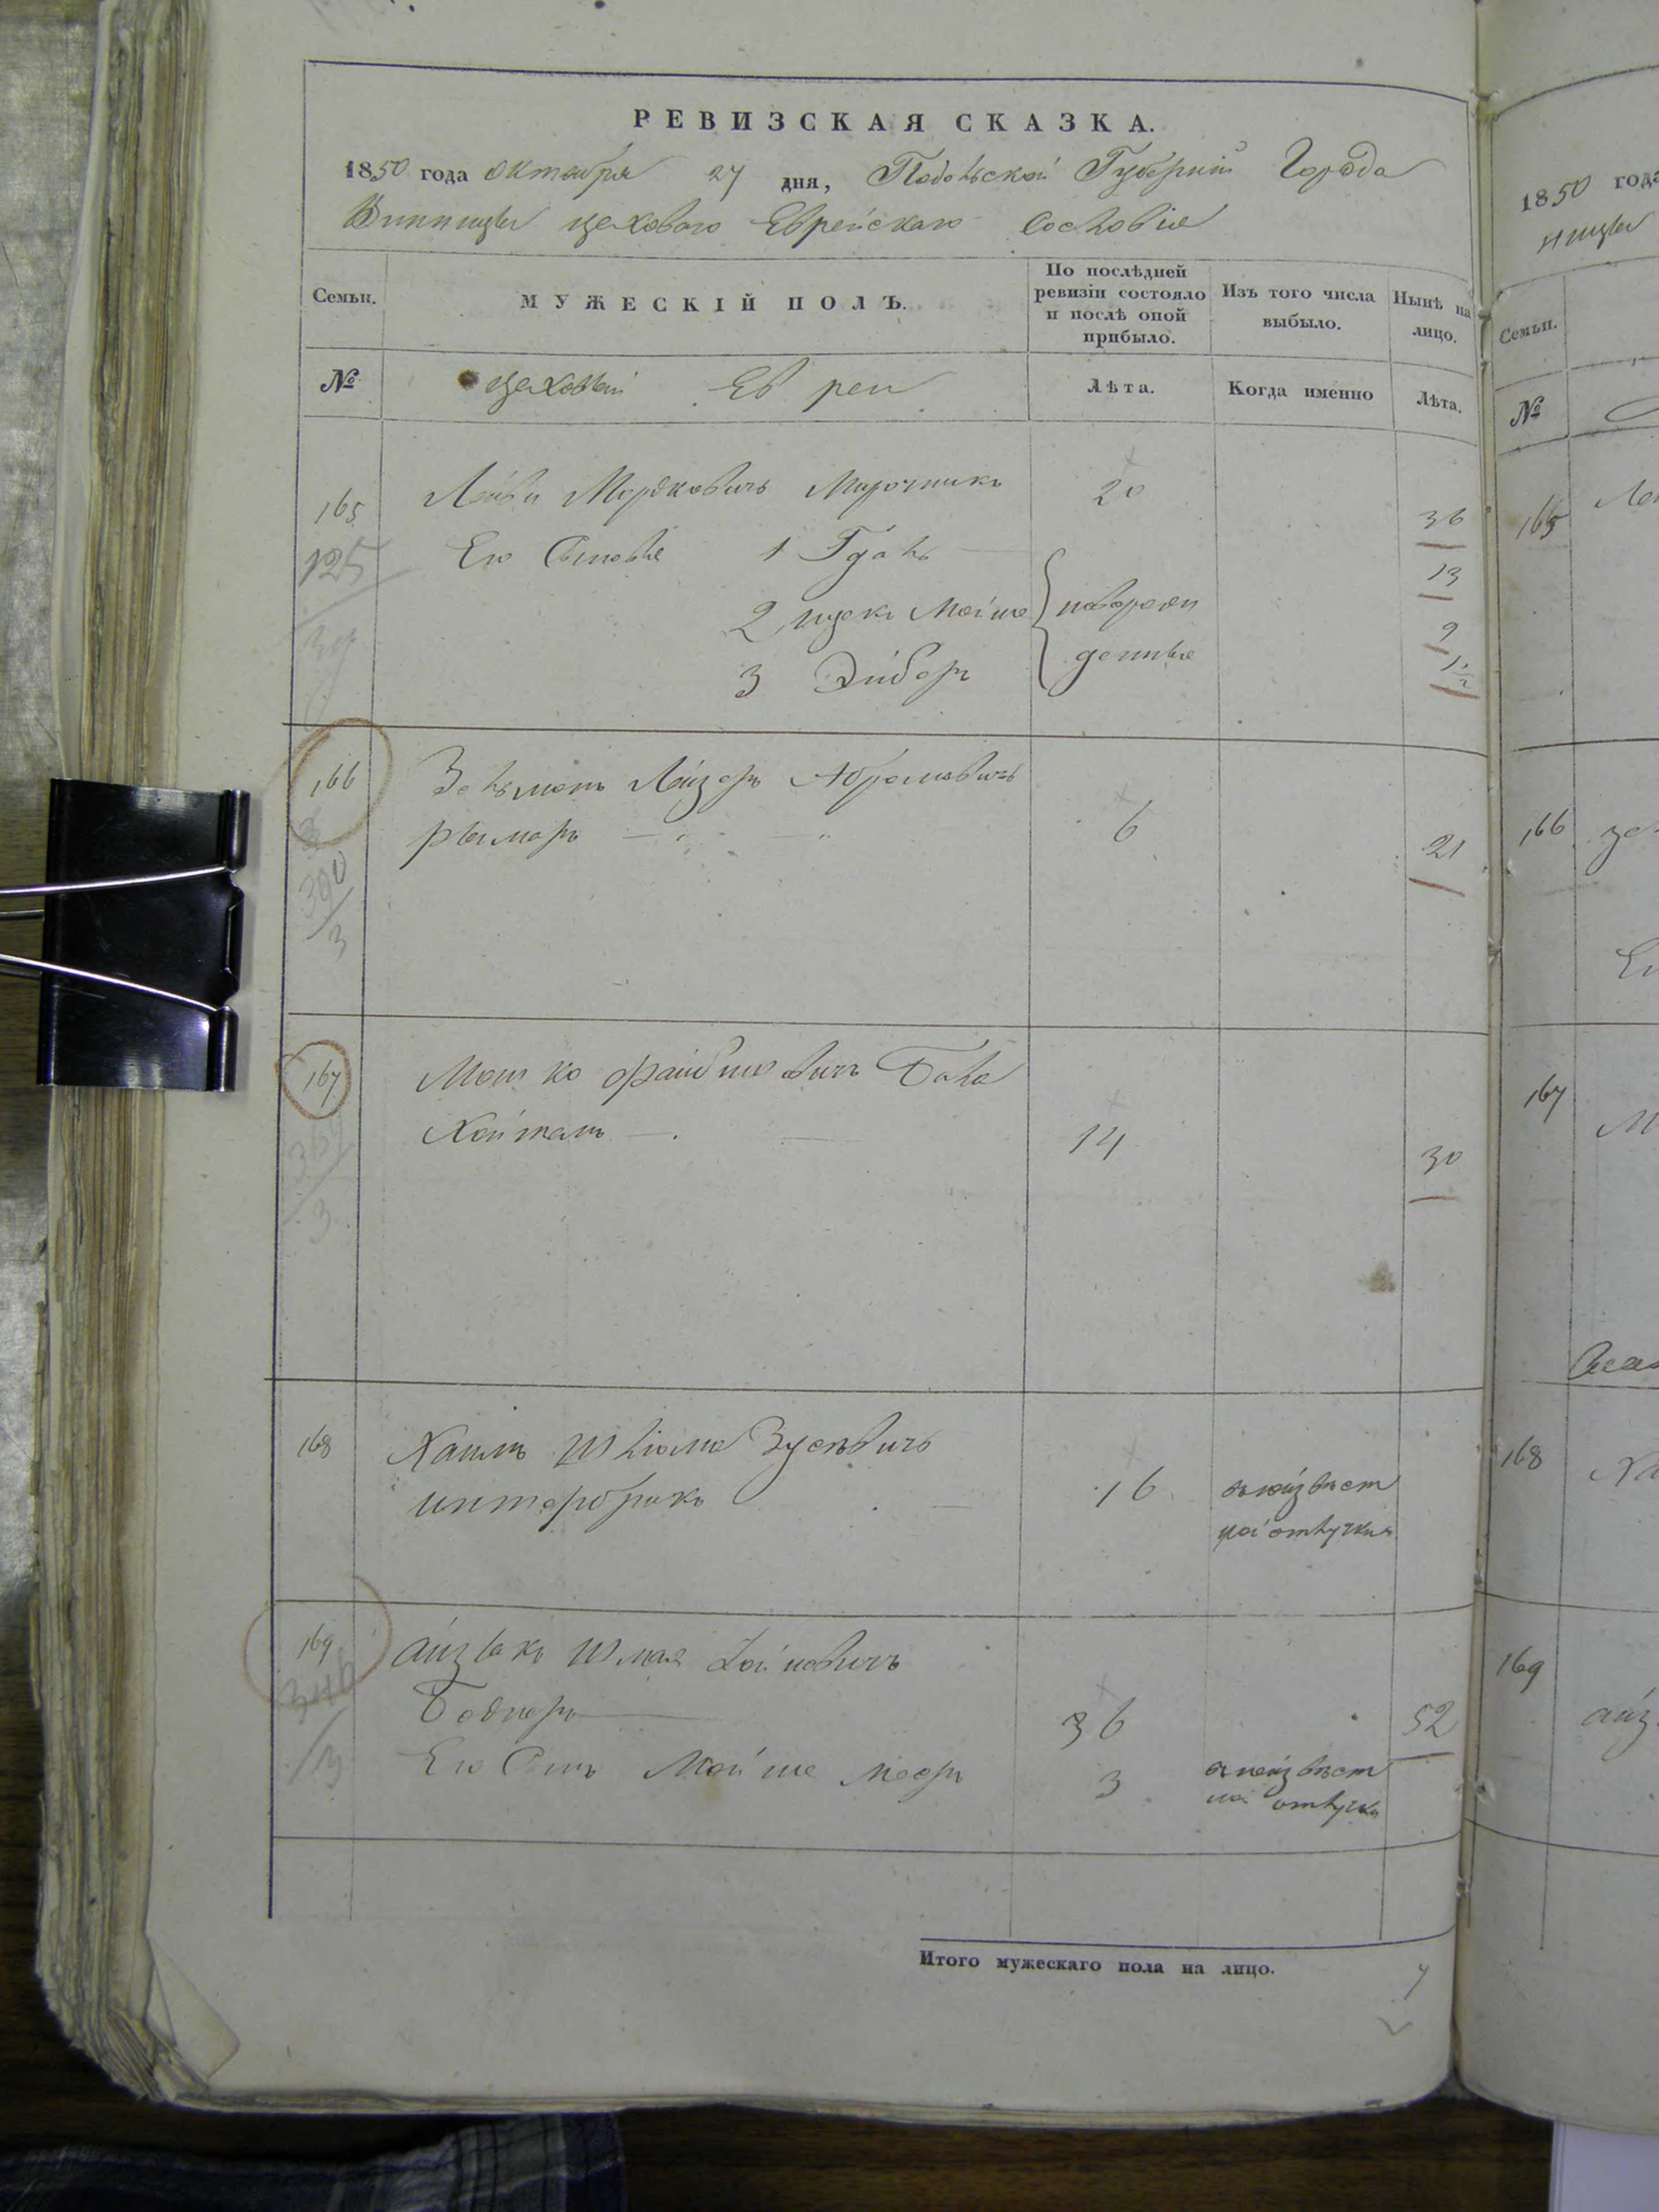 РЕВИЗСКАЯ СКАЗКА.
1850 года Октября 27 дня, Подольской Губерніи Города
Винницы цеховаго Еврейскаго Сословія
Семьи. МУЖЕСКІЙ ПОЛЪ. По послѣдней ревизіи состояло и послѣ оной прибыло. Изъ того числа выбыло. Нынѣ на лицо.
№ цеховый Евреи Лѣта. Когда именно Лѣта.
165 Лейви Мордковичъ Мирочникъ 20 36
125 Его Сыновья 1 Гдаль 13
2 Ицекъ Мойше новорож 9
3 Эйберъ денные 1 1/2
166 Зельманъ Лейзеръ Абрамовичъ
Рымаръ 6 21
390
3
167 Мошко Файбишовичъ Бала
Хойманъ 14 30
369
3
168 Хаимъ Шліома Зусевичъ
Интербрикъ 16 въ неизвѣст
ной отлучки
169 Айзыкъ Шмая Хаимовичъ
346 Боднеръ 36 52
3 Его Сынъ Мойше Мееръ 3 въ неизвѣст
ной отлучки
Итого мужескаго пола на лицо. 7
1850 года
нницы
Семьи.
№
165
166
167
М
168
169